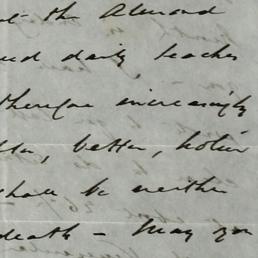 the Almond
daily teaches
therefore increasingly
better, holier
shall be neither
death - May you